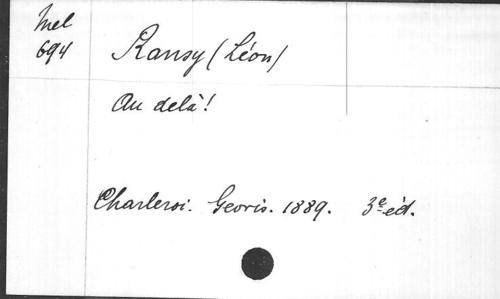 Mel
694
Ransy (Léon)
Au delà!
Charleroi. Georis. 1889. 3e éd.